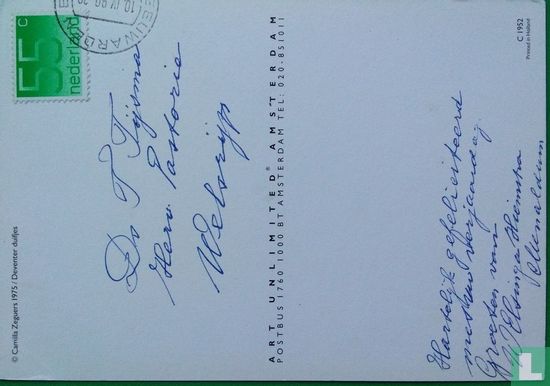 Hartelijk gefeliciteerd
met uw verjaardag.
Groeten van
Menaldum
ART UNLIMITED® AMSTERDAM
POSTBUS 1760 1000 BT AMSTERDAM TEL: 020-851011
Ds T Tijsma
Herv. Pastorie
Welsrijp
55 c
nederland
LEEUWARDEN
© Camilla Zeguers 1975 / Deventer duifjes
C 1952
Printed in Holland
catawiki